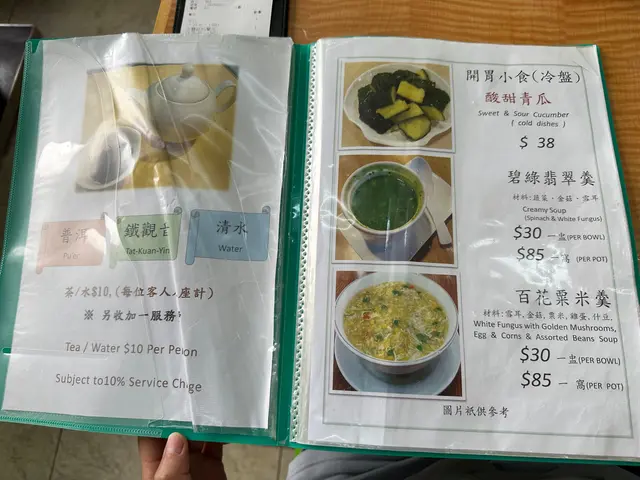 普洱
Pu'er
鐵觀音
Tat-Kuan-Yin
清水
Water
茶/水$10,(每位客人入座計)
※ 另收加一服務
Tea / Water $10 Per Pe on
Subject to10% Service Ch ge
開胃小食(冷盤)
酸甜青瓜
Sweet & Sour Cucumber
( cold dishes )
$ 38
碧綠翡翠羹
材料:蔬菜、金菇、雪耳
Creamy Soup
(Spinach & White Fungus)
$30 一盅(PER BOWL)
$85 一窩(PER POT)
百花粟米羹
材料:雪耳,金菇,粟米,雞蛋,什豆,
White Fungus with Golden Mushrooms,
Egg & Corns & Assorted Beans Soup
$30 一盅(PER BOWL)
$85 一 窩(PER POT)
圖片祇供參考